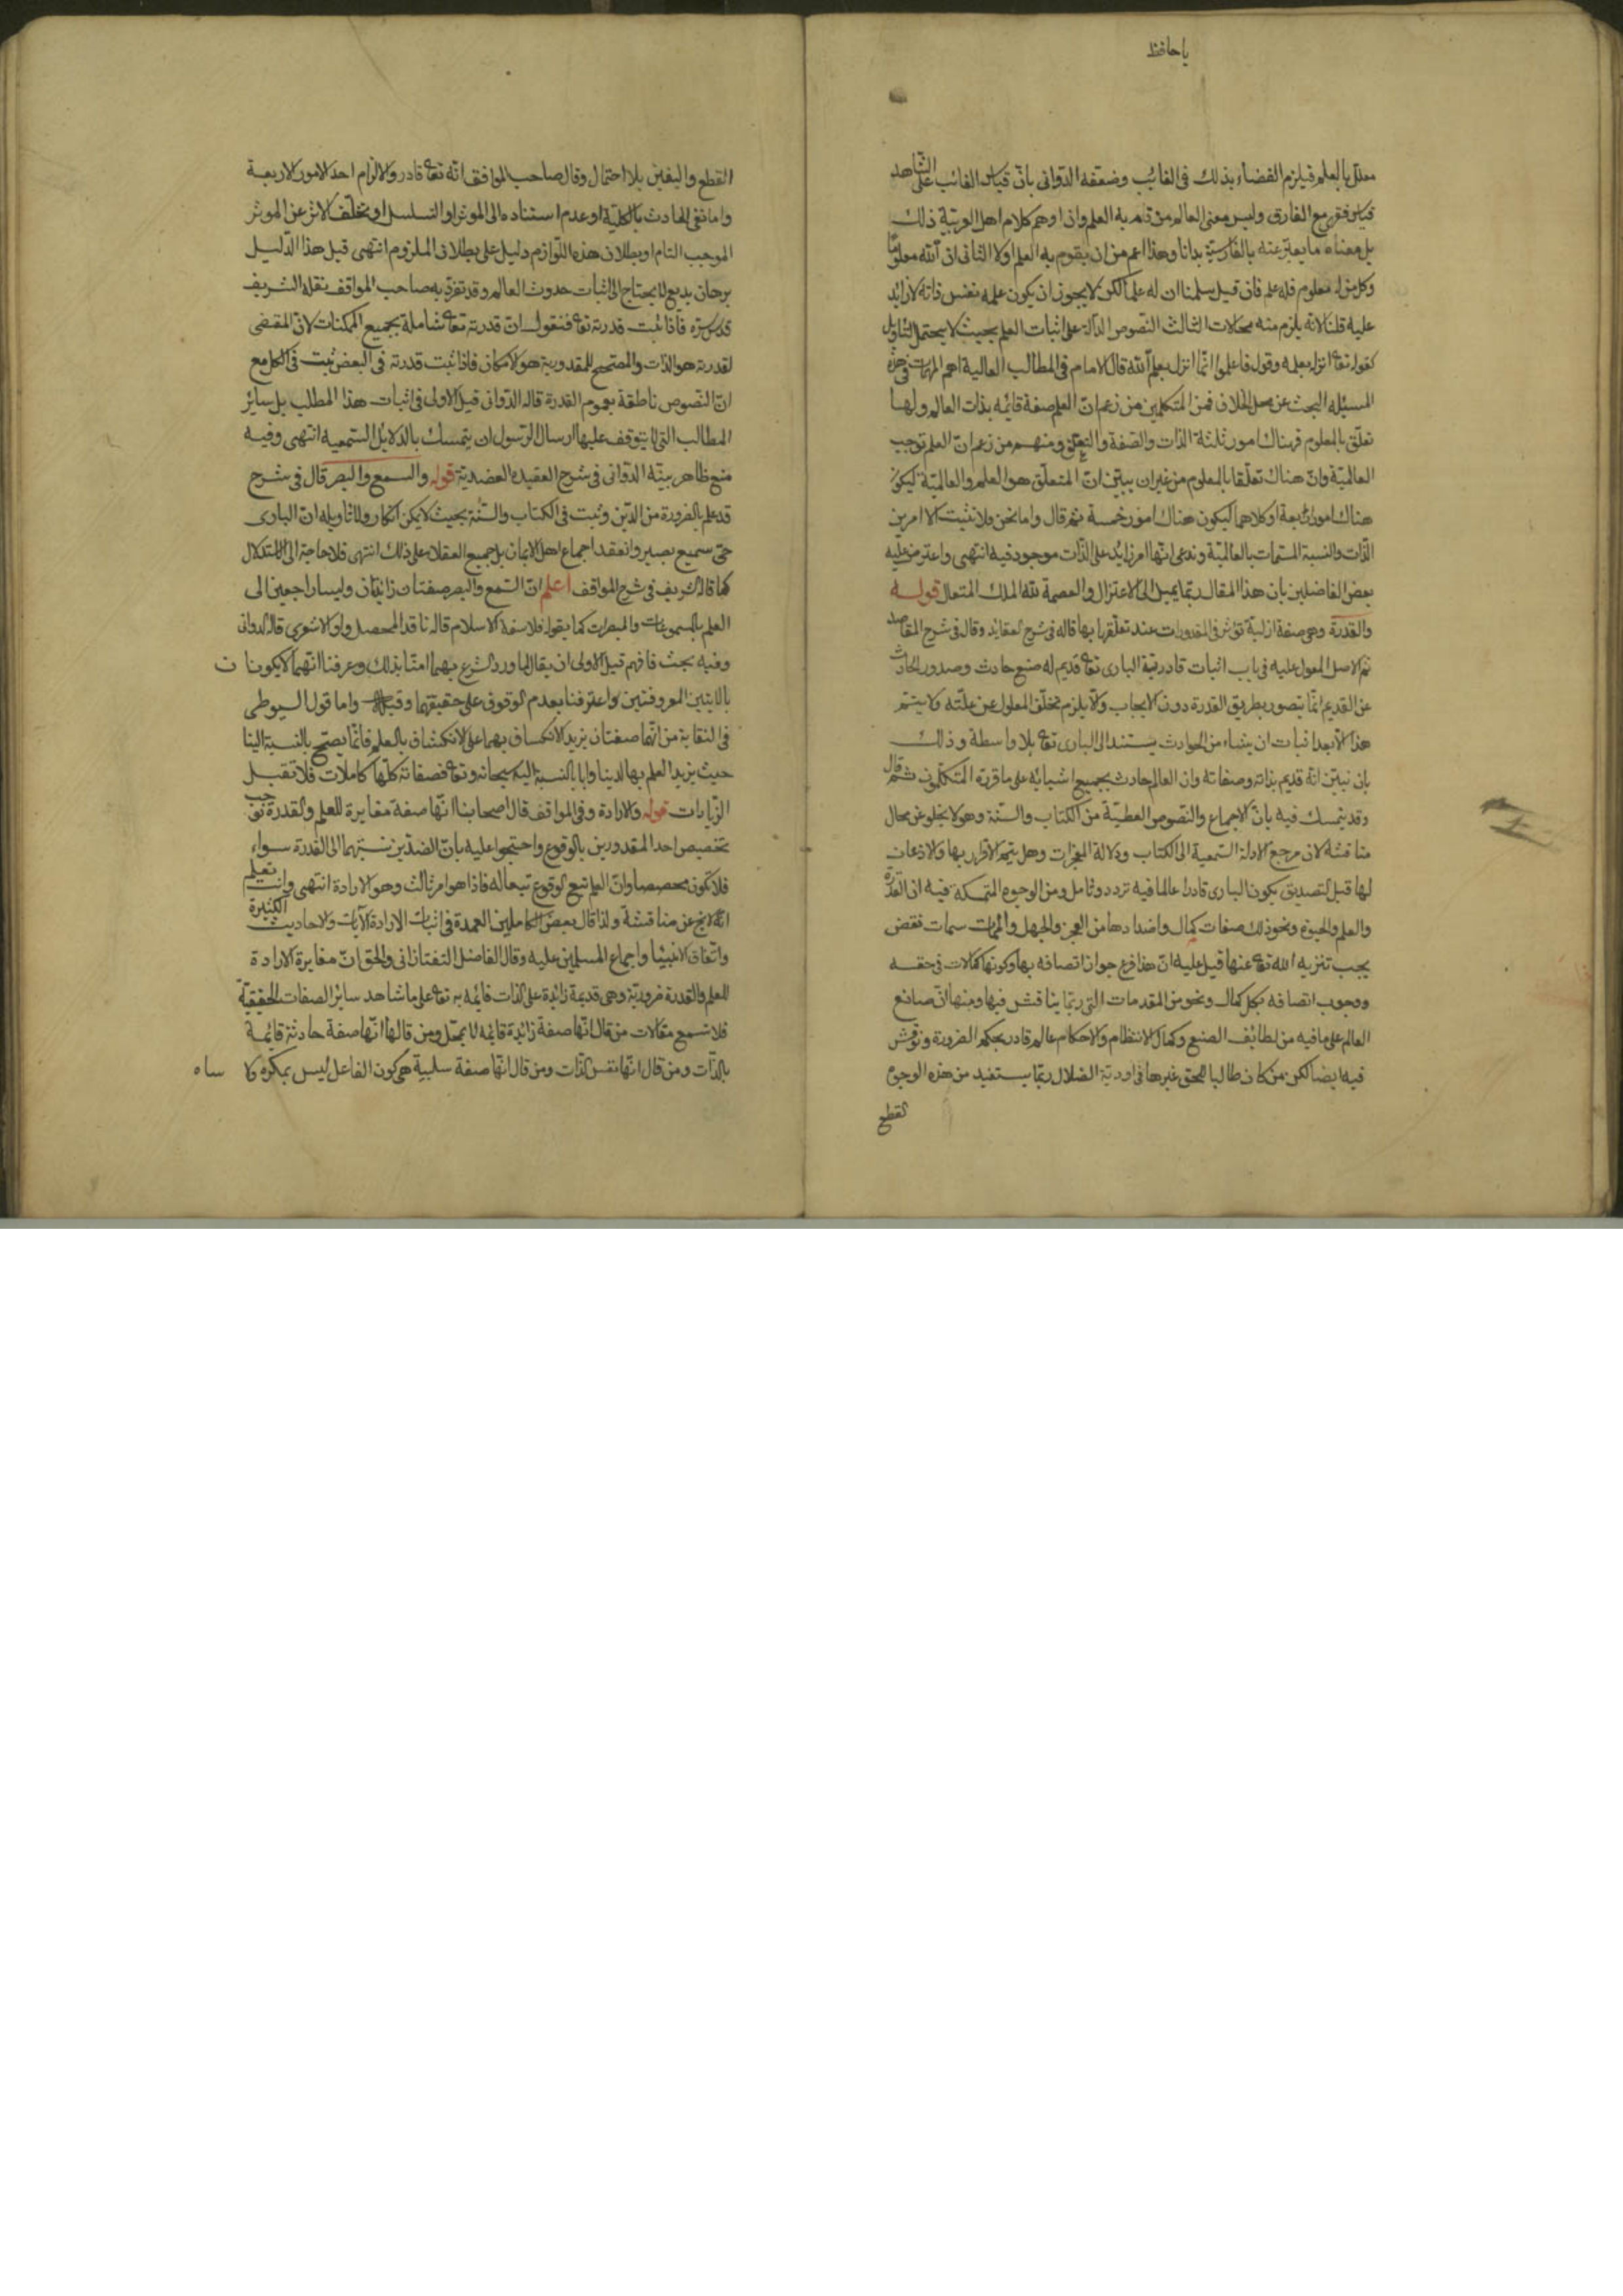 يا حافظ
معلل بالعلم فيلزم القضاء بذلك فى الغائب وضعفه الدوانى بانّ قياس الغائب على الشاهد
قياس فقهى مع الفارق وليس معنى العالم من قام به العلم وان اوهم كلام اهل العربية ذلك
بل معناه ما يعبّر عنه بالفارسيّة بدانا وهذا اعم من ان يقوم به العلم اولا الثانى ان آلله معلومًا
وكل من له معلوم فله علم فان قيل سلمنا ان له علما لكن لا يجوز ان يكون علمه نفس ذاته لا زائد
عليه قلنا لانه يلزم منه محالات الثالث النصوص الدآلة على اثبات العلم بحيث لا يحتمل التاويل
كقوله تع انزله بعلمه وقوله فاعلموا انّما انزل بعلم آلله قال الامام فى المطالب العالية اهم المهمات فى هذه
المسئله البحث عن محل الخلاف فمن المتكلمين من زعم انّ العلم صفة قائمه بذات العالم ولها
تعلّق بالمعلوم فهناك امور ثلثة الذات والصّفة والتعلق ومنهم من زعم انّ العلم توجب
العالميّة وانّ هناك تعلّقا بالمعلوم من غير ان يبيّن انّ المتعلّق هو العلم والعالميّة ليكون
هناك امور اربعة او كلاهما ليكون هناك امور خمسة ثم قال واما نحن فلا نثبت الا امرين
الذّات والنسبة المسمات بالعالميّة وندعى انّها امر زائد على الذّات موجود فيه انتهى واعترض عليه
بعض الفاضلين بان هذا المقال ربّما يميل الى الاعتزال والعصمة للّه الملك المتعال قوله
والقدرة وهى صفة ازليّة تؤثر فى المقدورات عند تعلّقها بها قاله فى شرح العقايد وقال فى شرح المقاصد
ثم الاصل المعول عليه فى باب اثبات قادريّة البارى تع انّه قديم له صنع حادث وصدور الحادث
عن القديم انّما يتصوّر بطريق القدرة دون الايجاب والّا يلزم تخلّف المعلول عن علّته ولا يتمّ
هذا الّا بعد اثبات ان شياء من الحوادث يستند الى البارى تع بلا واسطة وذلك
بان نبيّن انّه قديم بذاته وصفاته وان العالم حادث بجميع اشيائه على ما قرره المتكلمون ثمّ قال
وقد يتمسك فيه بانّ الاجماع والنصوص القطعيّة من الكتاب والسنّة وهو لا يخلو عن مجال
مناقشة لان مرجع الادلة السّمعية الى الكتاب ودلالة المعجزات وهل يتم الاقرار بها والاذعان
لها قبل التصديق بكون البارى قادرا عالما فيه تردد وتأمل ومن الوجوه المتمسكة فيه ان القدرة
والعلم والحيوة ونحو ذلك صفات كمال واضدادها من العجز والجهل والممات سمات نقص
يجب تنزيه الله تع عنها قيل عليه انّ هذا فرع جواز اتصافه بها وكونها كمالات فى حقه
ووجوب اتصافه بكل كمال ونحو من المقدمات التى ربّما يناقش فيها ومنها انّ صانع
العالم على ما فيه من لطائف الصنع وكمال الانتظام والاحكام عالم قادر بحكم الضرورة ونوقش
فيه ايضا لكن من كان طالبا للحق غير هائم فى اودية الضلال ربّما يستفيد من هذه الوجوه
القطع
القطع واليقين بلا احتمال وقال صاحب المواقف انّه تع قادر والا لزم احد الامور الاربعة
واما نفى الحادث بالكليّة او عدم استناده الى الموثر او التسلسل او تخلّف الاثر عن الموثر
الموجب التام او بطلان هذه اللّوازم دليل على بطلان الملزوم انتهى قيل هذا الدّليل
برهان بديع لا يحتاج الى اثبات حدوث العالم وقد تفرّد به صاحب المواقف نقله الشريف
قدس سرّه فاذا ثبت قدرته تع فنقول انّ قدرته تع شاملة بجميع الممكنات لانّ المقتضى
لقدرته هو الذات والمصحح للمقدورية هو الامكان فاذا ثبت قدرته فى البعض ثبت فى الكل مع
انّ النّصوص ناطقة بعموم القدرة قاله الدّوانى قيل الاولى فى اثبات هذا المطلب بل سائر
المطالب التى لا يتوقف عليها ارسال الرّسول ان يتمسك بالدلايل السّمعيه انتهى وفيه
منع ظاهر بيّنه الدّوانى فى شرح العقيده العضديّة قوله والسمع والبصر قال فى شرح
قد علم بالضرورة من الدّين وثبت فى الكتاب والسّنّة بحيث لا يمكن انكاره ولا تاويله انّ البارى
حى سميع بصير وانعقد اجماع اهل الايمان بل جميع العقلاء على ذلك انتهى فلا حاجة الى الاستدلال
كما قاله الشريف فى شرح المواقف اعلم انّ السّمع والبصر صفتان زائدتان وليسا راجعين الى
العلم بالمسموعات والمبصرات كما يقوله فلاسفة الاسلام قاله ناقد المحصل واوّله الاشعرى قاله الدوانى
وفيه بحث فافهم قيل الاولى ان يقال لما ورد الشرع بهما امنّا بذلك وعرفنا انّهما لا يكونان
بالآلتين المعروفتين واعترفنا بعدم الوقوف على حقيقتهما واما قول السيوطى
فى النقاية من انّهما صفتان يزيد الانكشاف بهما على الانكشاف بالعلم فانّما يصحّ بالنسبة الينا
حيث يزيد العلم بها لدينا واما بالنسبة اليه سبحانه وتع فصفاته كلّها كاملات فلا تقبل
الزّيادات قوله والارادة وفى المواقف قال اصحابنا انّها صفة مغايرة للعلم والقدرة توجب
تخصيص احد المقدورين بالوقوع واحتجوا عليه بانّ الضدّين نسبتهما الى القدرة سواء
فلا تكون مخصصا وانّ العلم تبع الوقوع تبعا له فاذا هو امر ثالث وهو الارادة انتهى وانت تعلم
انّه لا يخ عن مناقشة ولذا قال بعض الكاملين العمدة فى اثبات الارادة الآيات والاحاديث الكثيرة
واتّفاق الانبيا واجماع المسلمين عليه وقال الفاضل التفتازانى والحق انّ مغايرة الارادة
للعلم والقدرة ضروريّة وهى قديمة زائدة على الذات قائمه به تع على ما شاهد سائر الصفات الحقيقيّة
فلا تسمع مقالات من قال انّها صفة زائدة قائمه لا بمحل ومن قال انّها صفة حادثة قائمة
بالذّات ومن قال انّها نفس الذّات ومن قال انّها صفة سلبية هى كون الفاعل ليس بمكره ولا ساه